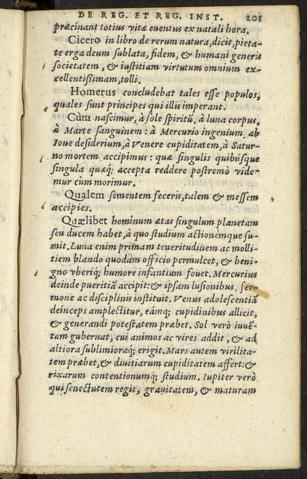 DE REG. ET REG. INST. 201
præcinant totius vitæ euentus ex natali hora.
Cicero in libro de rerum natura, dicit, pieta-
te erga deum sublata, fidem, & humani generis
societatem, & iustitiam virtutum omnium ex-
cellentissimam, tolli.
Homerus concludebat tales esse populos,
quales sunt principes qui illis imperant.
Cùm nascimur, à sole spiritũ, à luna corpus,
à Marte sanguinem: à Mercurio ingenium, ab
Ioue desiderium, à Venere cupiditatem, à Satur-
no mortem accipimus: quæ singulis quibusque
singula quæq; accepta reddere postremò vide-
mur cùm morimur.
Qualem sementem feceris, talem & messem
accipies.
Quælibet hominum ætas singulum planetam
seu ducem habet, à quo studium actionémque su-
mit. Luna enim primam teneritudinem ac molli-
tiem blando quodam officio permulcet, & beni-
gno vberíq; humore infantium fouet. Mercurius
deinde pueritiã accipit: & ipsam lusionibus, ser-
mone ac disciplinis instituit. Venus adolescentiã
deinceps amplectitur, eámq; cupidinibus allicit,
& generandi potestatem præbet. Sol verò iuuẽ-
tam gubernat, cui animos ac vires addit, & ad
altiora sublimioráq; erigit. Mars autem virilita-
tem præbet, & diuitiarum cupiditatem affert: &
rixarum contentionumq; studium. Iupiter verò
qui senectutem regit, grauitatem, & maturam